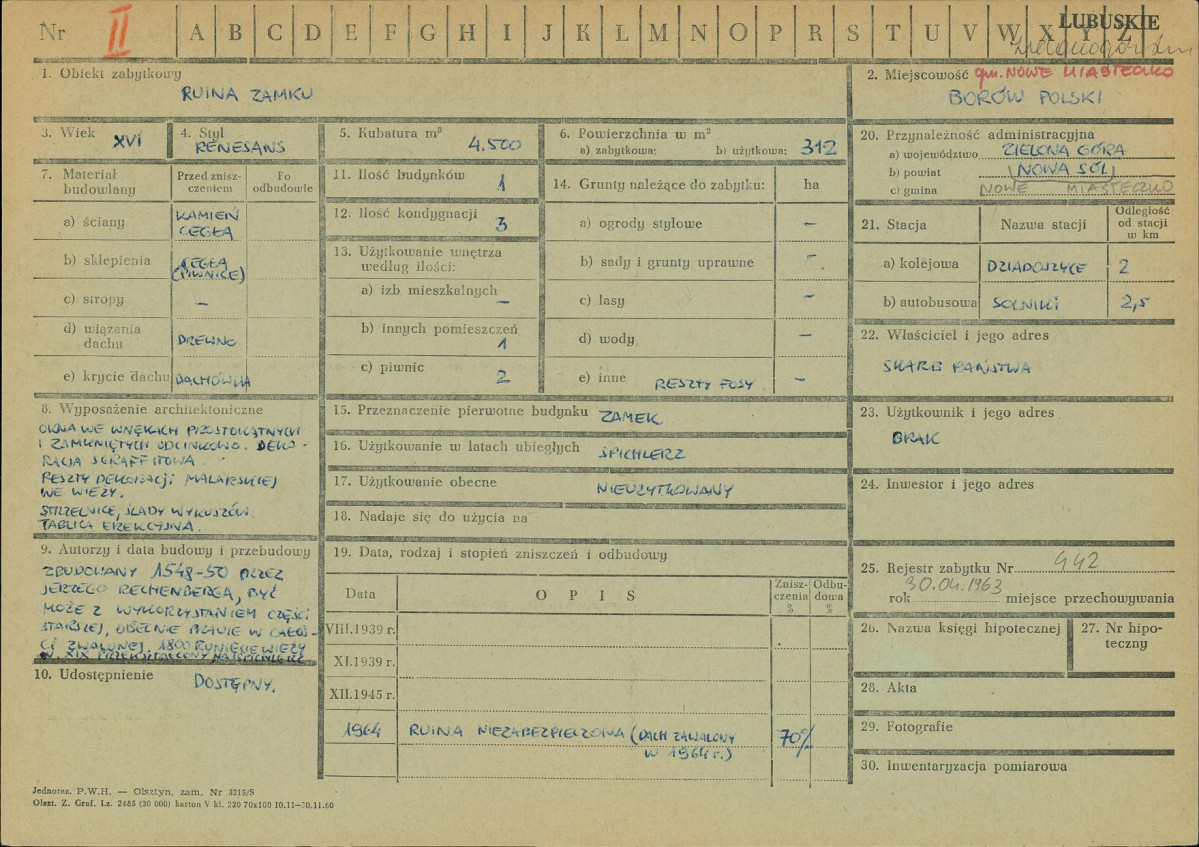 Nr II A B C D E F G H I J K L M N O P R S T U V W X Y Z
LUBUSKIE
1. Obiekt zabytkowy
RUINA ZAMKU
2. Miejscowość gm. NOWE MIASTECZKO
BORÓW POLSKI
3. Wiek XVI
4. Styl
RENESANS
5. Kubatura m³
4.500
6. Powierzchnia w m²
a) zabytkowa: b) użytkowa: 312
7. Materiał budowlany
Przed znisz-
czeniem
Po
odbudowie
a) ściany KAMIEŃ
CEGŁA
b) sklepienia CEGŁA
(PIWNICE)
c) stropy –
d) wiązania
dachu DREWNO
e) krycie dachu DACHÓWKA
8. Wyposażenie architektoniczne
OKNA WE WNĘKACH PROSTOKĄTNYCH
I ZAMKNIĘTYCH ODCINKOWO. DEKO-
RACJA SGRAFFITOWA.
RESZTY DEKORACJI MALARSKIEJ
WE WIEŻY.
STRZELNICE, ŚLADY WYKUSZÓW.
TABLICA EREKCYJNA.
9. Autorzy i data budowy i przebudowy
ZBUDOWANY 1548-50 PRZEZ
JERZEGO RECHENBERGA, BYĆ
MOŻE Z WYKORZYSTANIEM CZĘŚCI
STARSZEJ, OBECNIE PRAWIE W CAŁOŚ-
CI ZWALONEJ. 1800 RUNIĘCIE WIEŻY
W XIX PRZEKSZTAŁCONY NA SPICHLERZ
10. Udostępnienie
DOSTĘPNY.
11. Ilość budynków
1
12. Ilość kondygnacji
3
13. Użytkowanie wnętrza
według ilości:
a) izb mieszkalnych
–
b) innych pomieszczeń
1
c) piwnic
2
14. Grunty należące do zabytku: ha
a) ogrody stylowe –
b) sady i grunty uprawne –
c) lasy –
d) wody –
e) inne RESZTY FOSY –
15. Przeznaczenie pierwotne budynku ZAMEK
16. Użytkowanie w latach ubiegłych SPICHLERZ
17. Użytkowanie obecne
NIEUŻYTKOWANY
18. Nadaje się do użycia na
19. Data, rodzaj i stopień zniszczeń i odbudowy
Data OPIS Znisz-
czenia
%
Odbu-
dowa
%
VIII.1939 r.
XI.1939 r.
XII.1945 r.
1964 RUINA NIEZABEZPIECZONA (DACH ZAWALONY
W 1964 r.) 70%
20. Przynależność administracyjna
a) województwo ZIELONA GÓRA
b) powiat NOWA SÓL
c) gmina NOWE MIASTECZKO
21. Stacja Nazwa stacji Odległość
od stacji
w km
a) kolejowa DZIADOSZYCE 2
b) autobusowa SOLNIKI 2,5
22. Właściciel i jego adres
SKARB PAŃSTWA
23. Użytkownik i jego adres
BRAK
24. Inwestor i jego adres
25. Rejestr zabytku Nr 442
rok 30.04.1963 miejsce przechowywania
26. Nazwa księgi hipotecznej
27. Nr hipo-
teczny
28. Akta
29. Fotografie
30. Inwentaryzacja pomiarowa
Jednoraz. P.W.H. — Olsztyn, zam. Nr 3215/S
Olszt. Z. Graf. Lz. 2485 (30 000) karton V kl. 220 70x100 10.11—30.11.60